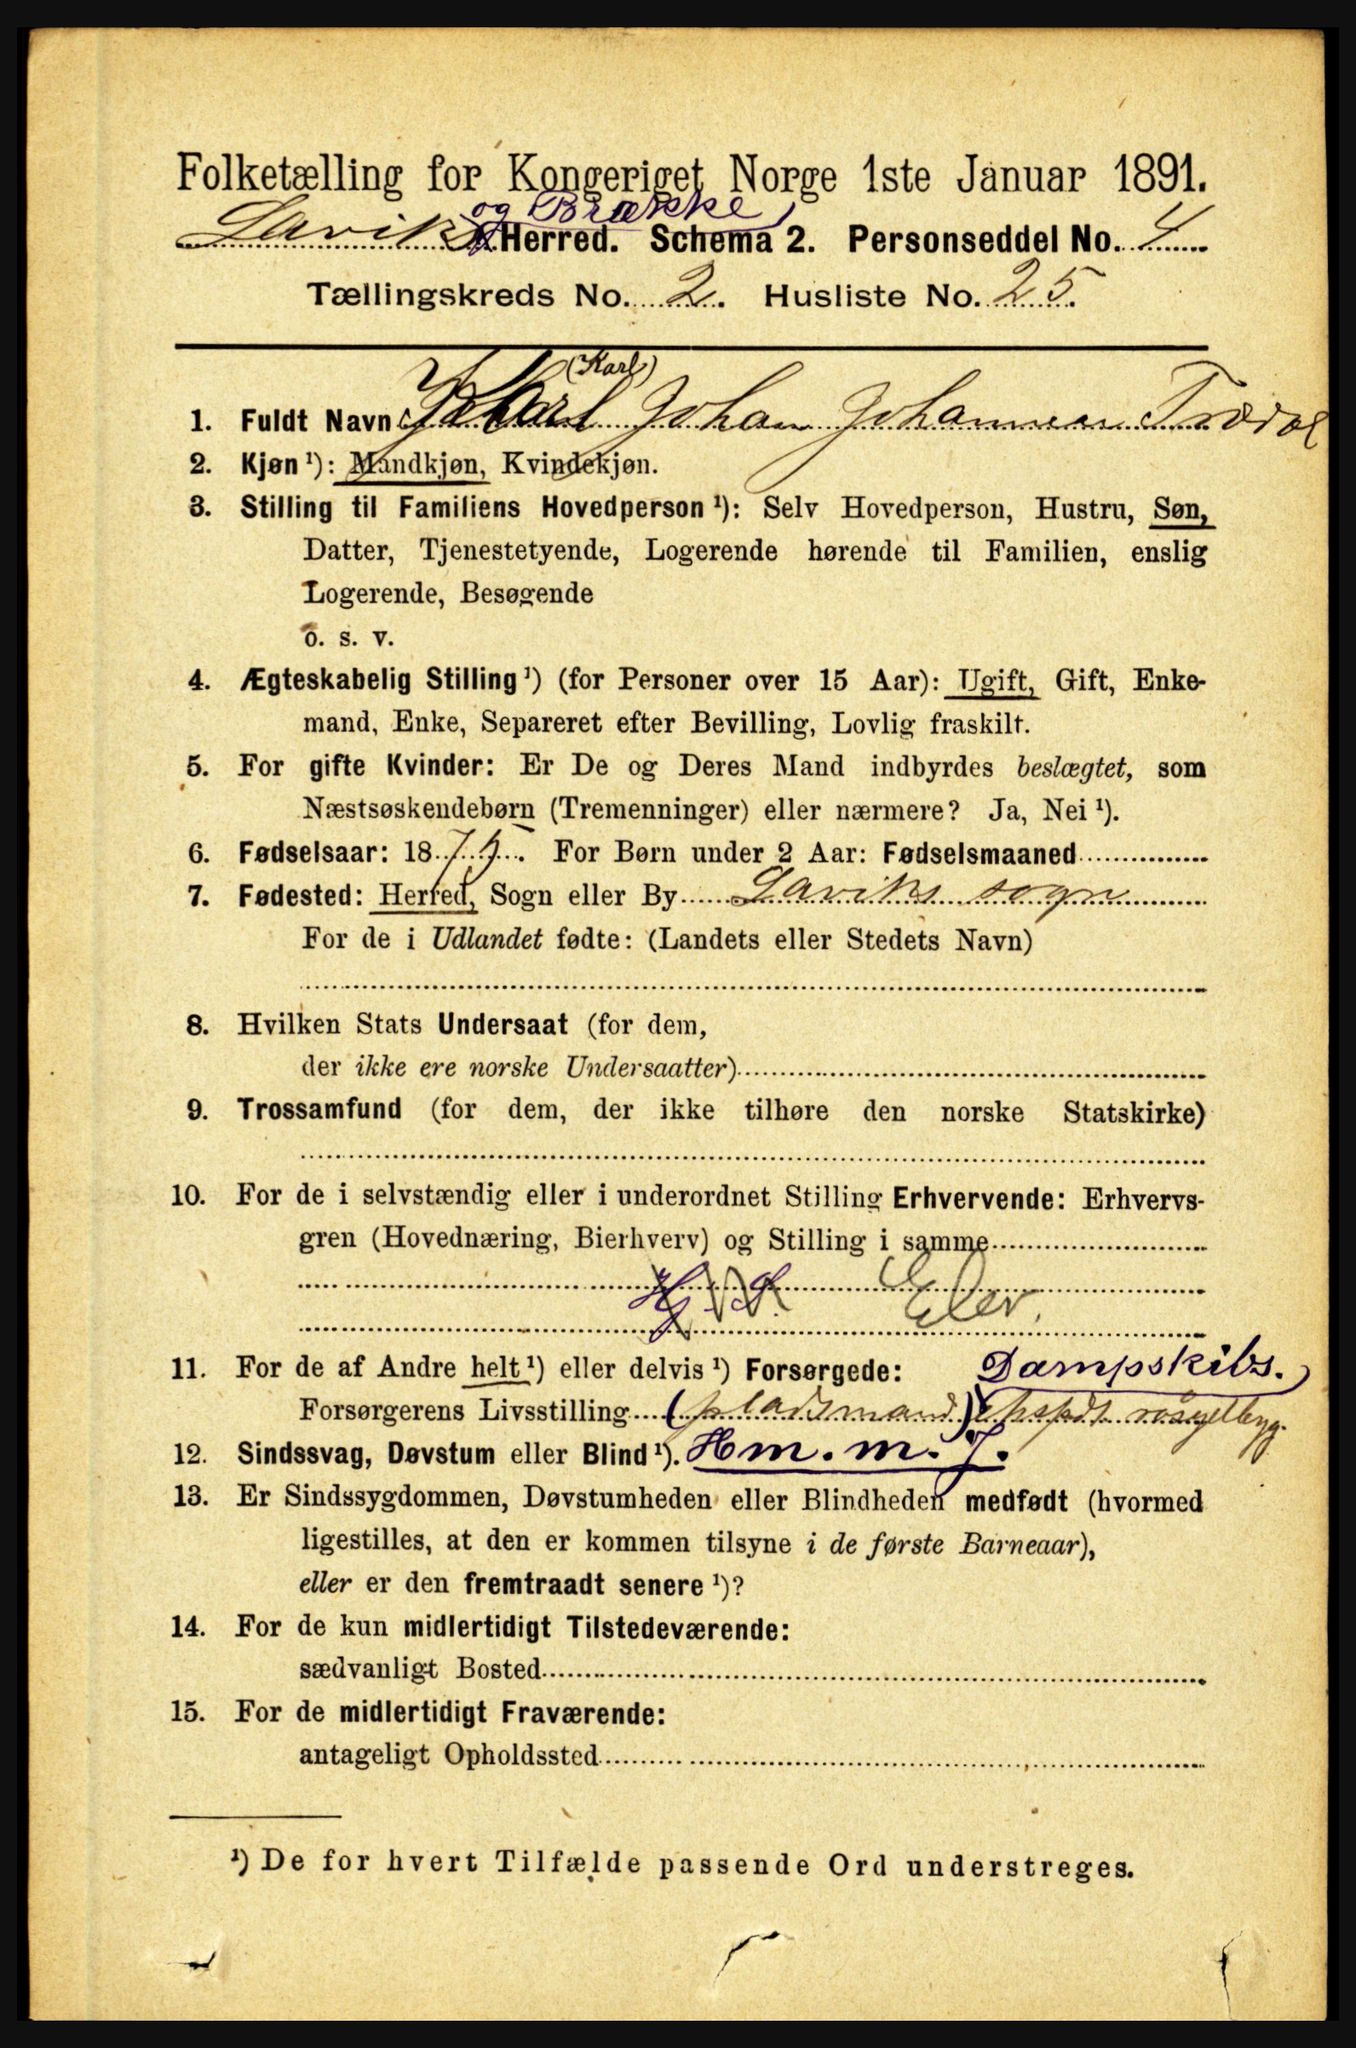 Folketælling for Kongeriget Norge 1ste Januar 1891.
og Brække
Lavik Herred. Schema 2. Personseddel No. 4
Tællingskreds No. 2. Husliste No. 25.
(Karl)
1. Fuldt Navn: Karl Johan Johannesen Trædal
2. Kjøn ¹): Mandkjøn, Kvindekjøn.
3. Stilling til Familiens Hovedperson ¹): Selv Hovedperson, Hustru, Søn,
Datter, Tjenestetyende, Logerende hørende til Familien, enslig
Logerende, Besøgende
o. s. v.
4. Ægteskabelig Stilling ¹) (for Personer over 15 Aar): Ugift, Gift, Enke-
mand, Enke, Separeret efter Bevilling, Lovlig fraskilt.
5. For gifte Kvinder: Er De og Deres Mand indbyrdes beslægtet, som
Næstsøskendebørn (Tremenninger) eller nærmere? Ja, Nei ¹).
6. Fødselsaar: 1875. For Børn under 2 Aar: Fødselsmaaned
7. Fødested: Herred, Sogn eller By Laviks sogn
For de i Udlandet fødte: (Landets eller Stedets Navn)
8. Hvilken Stats Undersaat (for dem,
der ikke ere norske Undersaatter)
9. Trossamfund (for dem, der ikke tilhøre den norske Statskirke)
10. For de i selvstændig eller i underordnet Stilling Erhvervende: Erhvervs-
gren (Hovednæring, Bierhverv) og Stilling i samme
Elev.
11. For de af Andre helt ¹) eller delvis ¹) Forsørgede: Dampskibs.
Forsørgerens Livsstilling (pladsmand)
12. Sindssvag, Døvstum eller Blind ¹). Hm. m. J.
13. Er Sindssygdommen, Døvstumheden eller Blindheden medfødt (hvormed
ligestilles, at den er kommen tilsyne i de første Barneaar),
eller er den fremtraadt senere ¹)?
14. For de kun midlertidigt Tilstedeværende:
sædvanligt Bosted
15. For de midlertidigt Fraværende:
antageligt Opholdssted
¹) De for hvert Tilfælde passende Ord understreges.